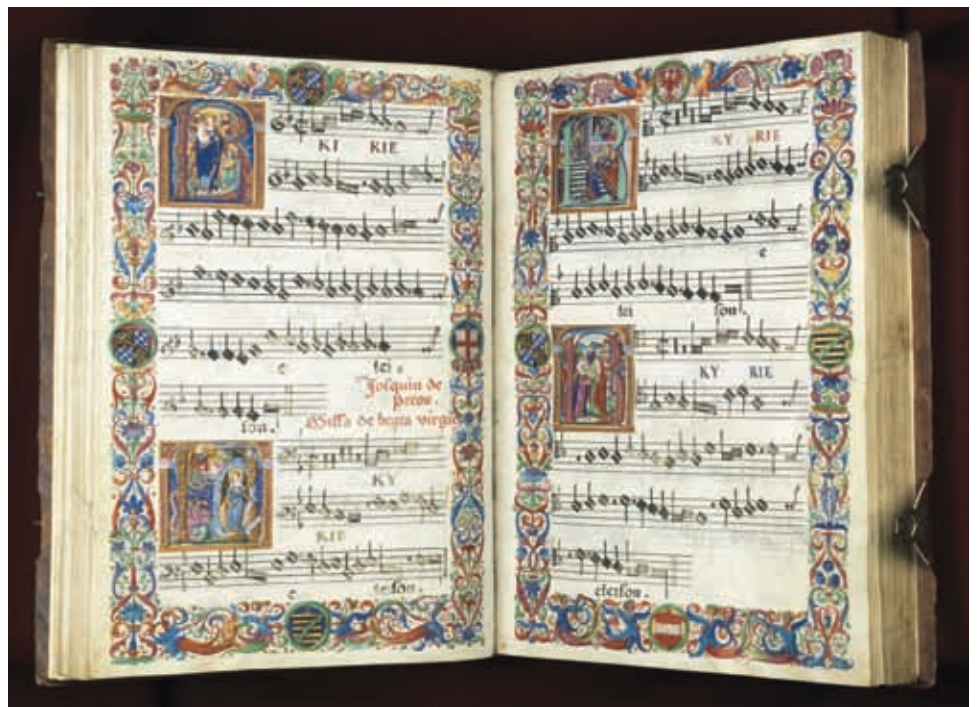 KI RIE
e lei
Josquin de
pres.
Missa de beata virgine
son.
KY
RIE
e leison.
KY RIE
e
lei son.
KY RIE
eleison.